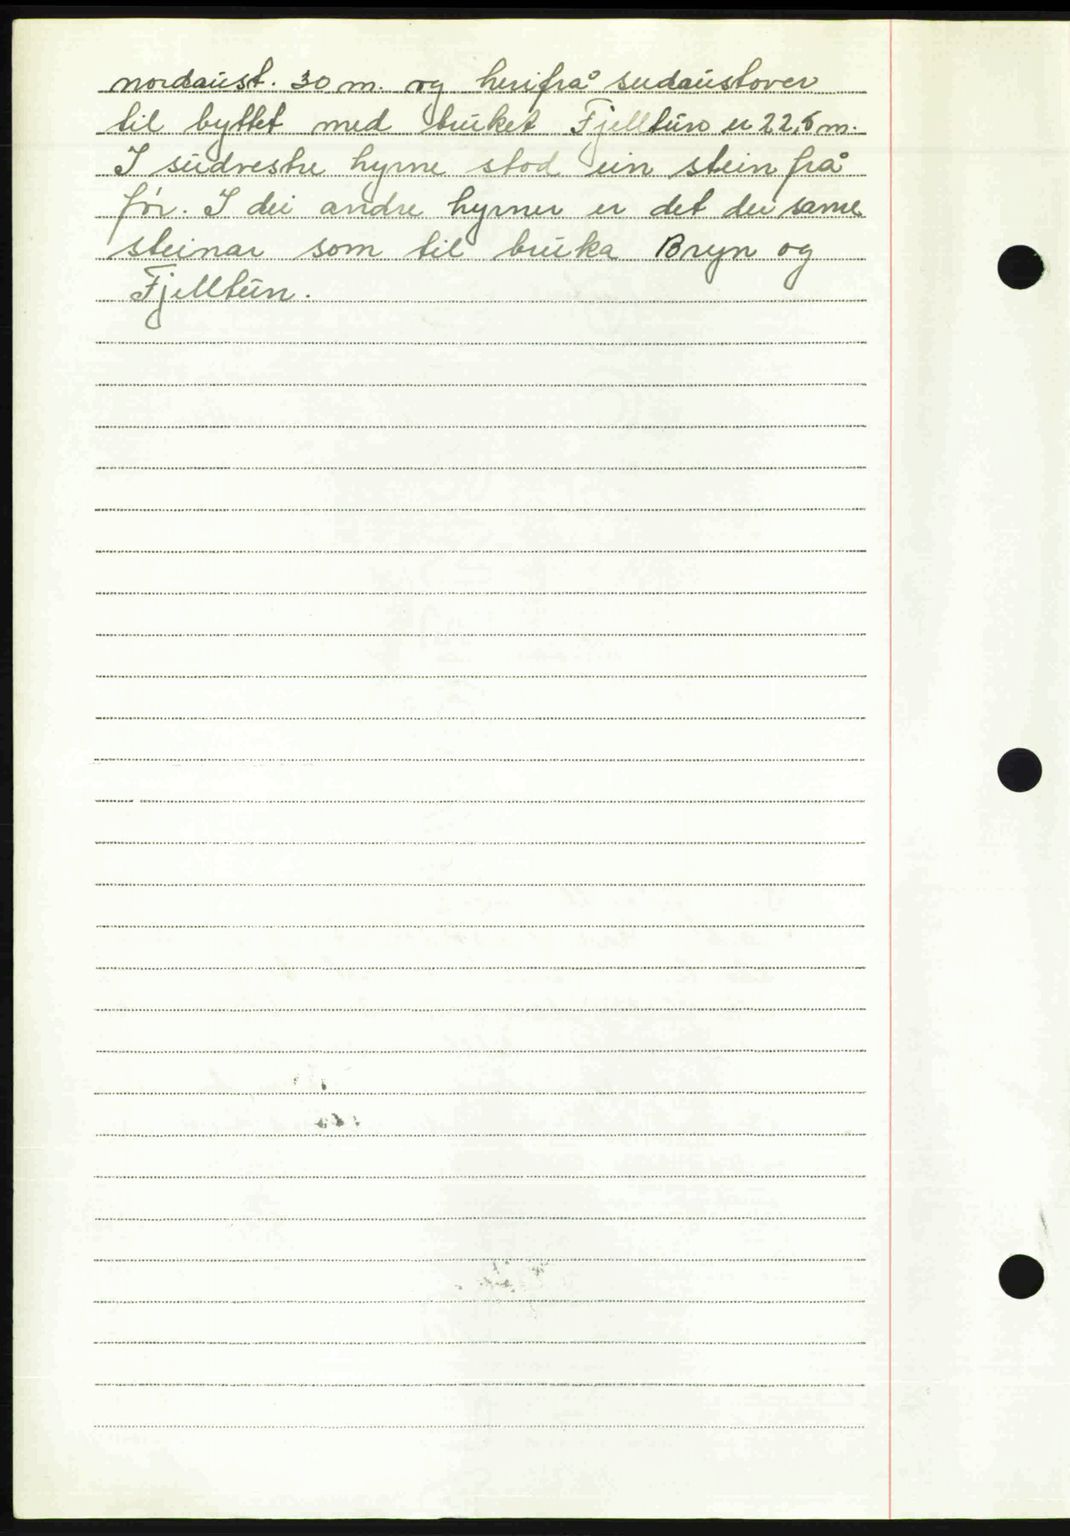 nordaust. 30 m. og herifrå sudaustover
til byttet med bruket Fjelltun er 22,5 m.
I sudvestre hyrne stod ein stein frå
før. I dei andre hyrner er det dei same
steinar som til bruka Bryn og
Fjelltun.